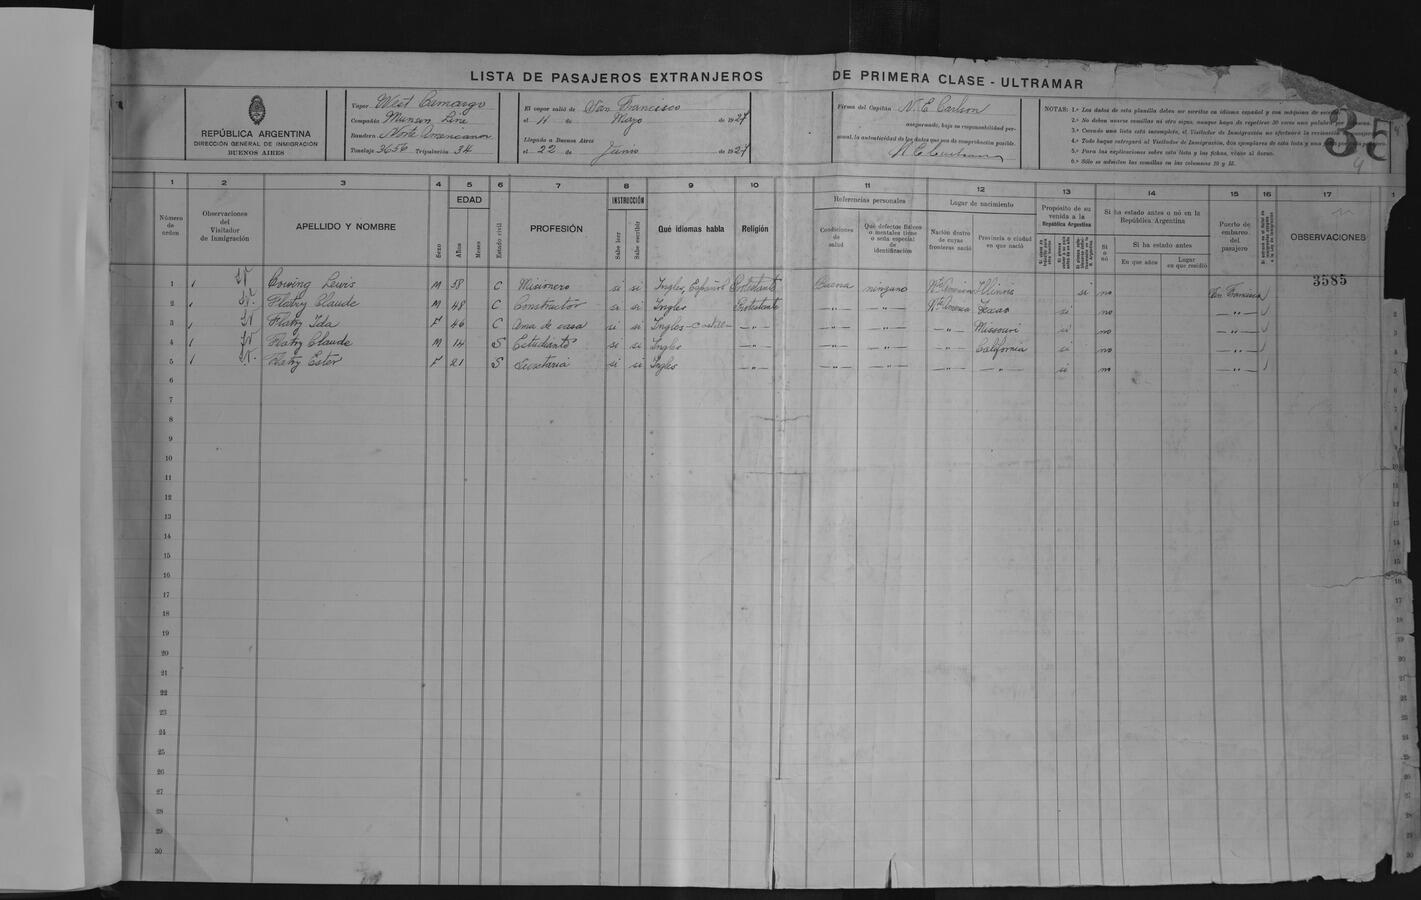 LISTA DE PASAJEROS EXTRANJEROS DE PRIMERA CLASE - ULTRAMAR
REPÚBLICA ARGENTINA
DIRECCIÓN GENERAL DE INMIGRACIÓN
BUENOS AIRES
Vapor West Camargo
Compañía Munson Line
Bandera Norte Americana
Tonelaje 3656 Tripulación 34
El vapor salió de San Francisco
el 11 de Mayo de 1927
Llegada a Buenos Aires
el 22 de Junio de 1927
Firma del Capitán N. E. Carlson
asegurando, bajo su responsabilidad personal, la autenticidad de los datos que sea de comprobación posible.
NOTAS: 1.ª Los datos de esta planilla deben ser escritos en idioma español y con máquina de
2.ª No deben usarse comillas ni otro signo, aunque haya de repetirse 30 veces una palabra
3.ª Cuando una lista esté incompleta, el Visitador de Inmigración no efectuará la
4.ª Todo buque entregará al Visitador de Inmigración, dos ejemplares de esta lista y una
5.ª Para las explicaciones sobre esta lista y las fichas, véase al dorso.
6.ª Sólo se admiten las comillas en las columnas 10 y 15.
35
1 2 3 4 5 6 7 8 9 10 11 12 13 14 15 16 17
Número de orden
Observaciones del Visitador de Inmigración
APELLIDO Y NOMBRE
Sexo
EDAD
Años
Meses
Estado civil
PROFESIÓN
INSTRUCCIÓN
Sabe leer
Sabe escribir
Qué idiomas habla
Religión
Referencias personales
Condiciones de salud
Qué defectos físicos o mentales tiene o seña especial de identificación
Lugar de nacimiento
Nación dentro de cuyas fronteras nació
Provincia o ciudad en que nació
Propósito de su venida a la República Argentina
Si ha estado antes o nó en la República Argentina
Si o nó
Si ha estado antes
En que años
Lugar en que residió
Puerto de embarco del pasajero
OBSERVACIONES
3585
1 Cowing Lewis M 58 C Misionero si si Ingles, Español Protestante Buena ninguno Nte America Illinois si no San Francisco
2 Flatry Claude M 48 C Constructor si si Ingles Protestante —"— —"— Nte America Texas si no —"—
3 Flatry Ida F 46 C Ama de casa si si Ingles-Castell- —"— —"— —"— Missouri si no —"—
4 Flatry Claude M 14 S Estudiante si si Ingles —"— —"— —"— California si no —"—
5 Flatry Ester F 21 S Secretaria si si Ingles —"— —"— —"— —"— —"— si no —"—
6
7
8
9
10
11
12
13
14
15
16
17
18
19
20
21
22
23
24
25
26
27
28
29
30